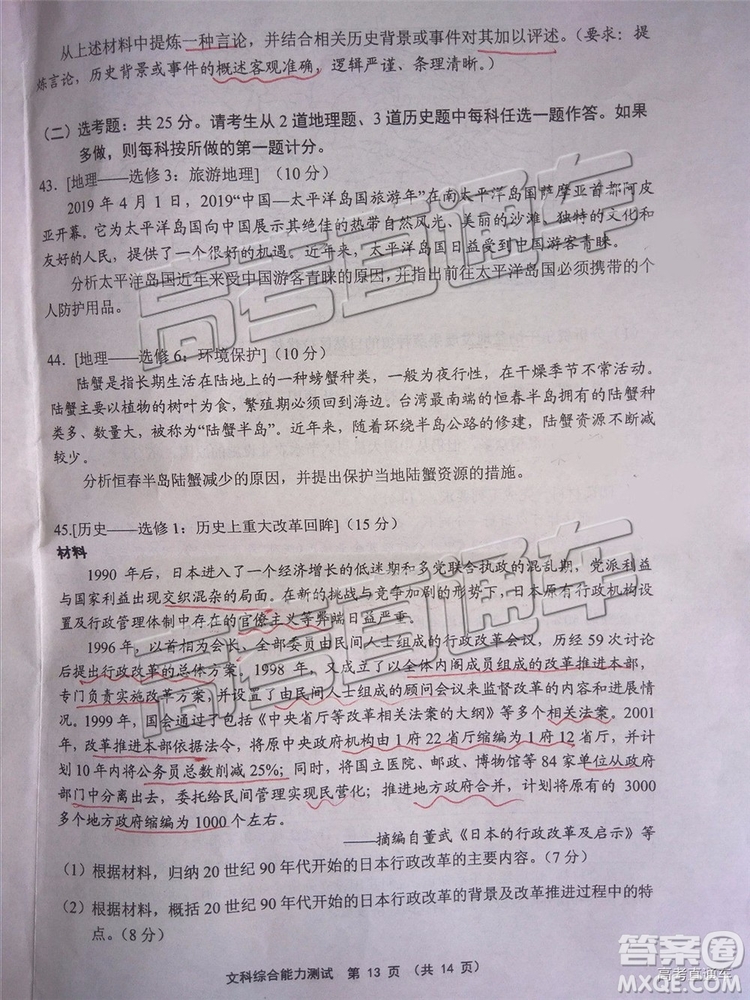 从上述材料中提炼一种言论，并结合相关历史背景或事件对其加以评述。（要求：提
炼言论，历史背景或事件的概述客观准确，逻辑严谨、条理清晰。）
（二）选考题：共 25 分。请考生从 2 道地理题、3 道历史题中每科任选一题作答。如果
多做，则每科按所做的第一题计分。
43. [地理——选修 3：旅游地理]（10 分）
2019 年 4 月 1 日，2019“中国—太平洋岛国旅游年”在南太平洋岛国萨摩亚首都阿皮
亚开幕。它为太平洋岛国向中国展示其绝佳的热带自然风光、美丽的沙滩、独特的文化和
友好的人民，提供了一个很好的机遇。近年来，太平洋岛国日益受到中国游客青睐。
分析太平洋岛国近年来受中国游客青睐的原因，并指出前往太平洋岛国必须携带的个
人防护用品。
44. [地理——选修 6：环境保护]（10 分）
陆蟹是指长期生活在陆地上的一种螃蟹种类，一般为夜行性，在干燥季节不常活动。
陆蟹主要以植物的树叶为食，繁殖期必须回到海边。台湾最南端的恒春半岛的陆蟹种
类多、数量大，被称为“陆蟹半岛”。近年来，随着环绕半岛公路的修建，陆蟹资源不断减
较少。
分析恒春半岛陆蟹减少的原因，并提出保护当地陆蟹资源的措施。
45.[历史——选修 1：历史上重大改革回眸]（15 分）
材料
1990 年后，日本进入了一个经济增长的低迷期和多党联合执政的混乱期，党派利益
与国家利益出现交织混杂的局面。在新的挑战与竞争加剧的形势下，日本原有行政机构设
置及行政管理体制中存在的官僚主义等弊端日益严重。
1996 年，以首相为会长、全部委员由民间人士组成的行政改革会议，历经 59 次讨论
后提出行政改革的总体方案。1998 年，又成立了以全体内阁成员组成的改革推进本部，
专门负责实施改革方案，并设置了由民间人士组成的顾问会议来监督改革的进展情
况。1999 年，国会通过了包括《中央省厅等改革相关法案的大纲》等多个相关法案。2001
年，改革推进本部依据法令，将原中央政府机构由 1 府 22 省厅缩编为 1 府 12 省厅，并计
划 10 年内将公务员总数削减 25%；同时，将国立医院、邮政、博物馆等 84 家单位从政府
部门中分离出去，委托给民间管理实现民营化；推进地方政府合并，计划将原有的 3000
多个地方政府缩编为 1000 个左右。
——摘编自董武《日本的行政改革及启示》等
（1）根据材料，归纳 20 世纪 90 年代开始的日本行政改革的主要内容。（7 分）
（2）根据材料，概括 20 世纪 90 年代开始的日本行政改革的背景及改革推进过程中的特
点。（8 分）
文科综合能力测试 第 13 页 （共 14 页）
高考直通车
高考直通车
高考直通车
答案圈
MXQE.COM